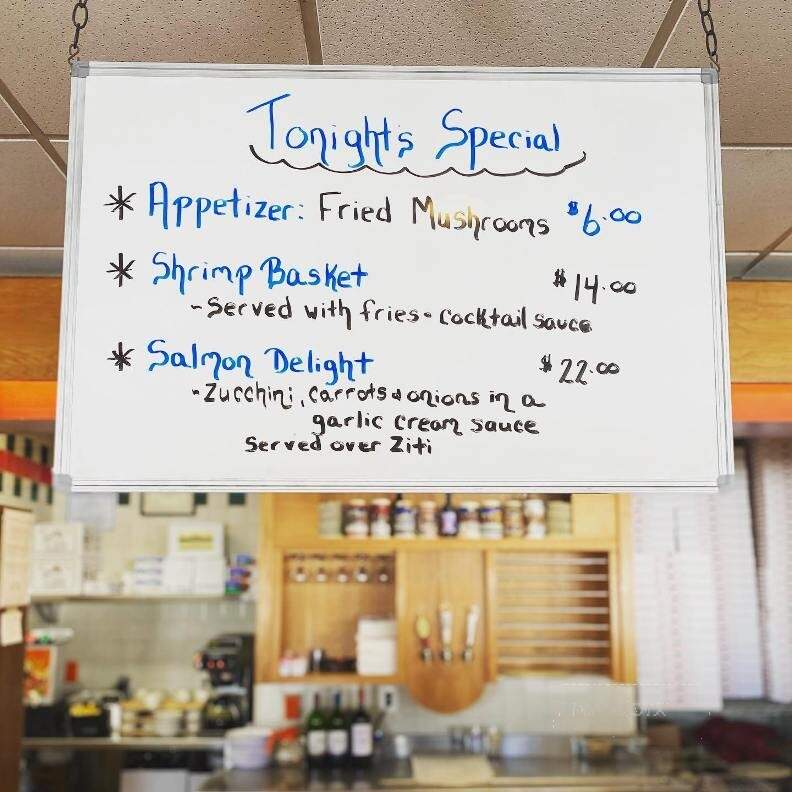 Tonight's Special
* Appetizer: Fried Mushrooms $6.00
* Shrimp Basket $14.00
- Served with fries & cocktail sauce
* Salmon Delight $22.00
- Zucchini, carrots & onions in a
garlic cream sauce
Served over Ziti